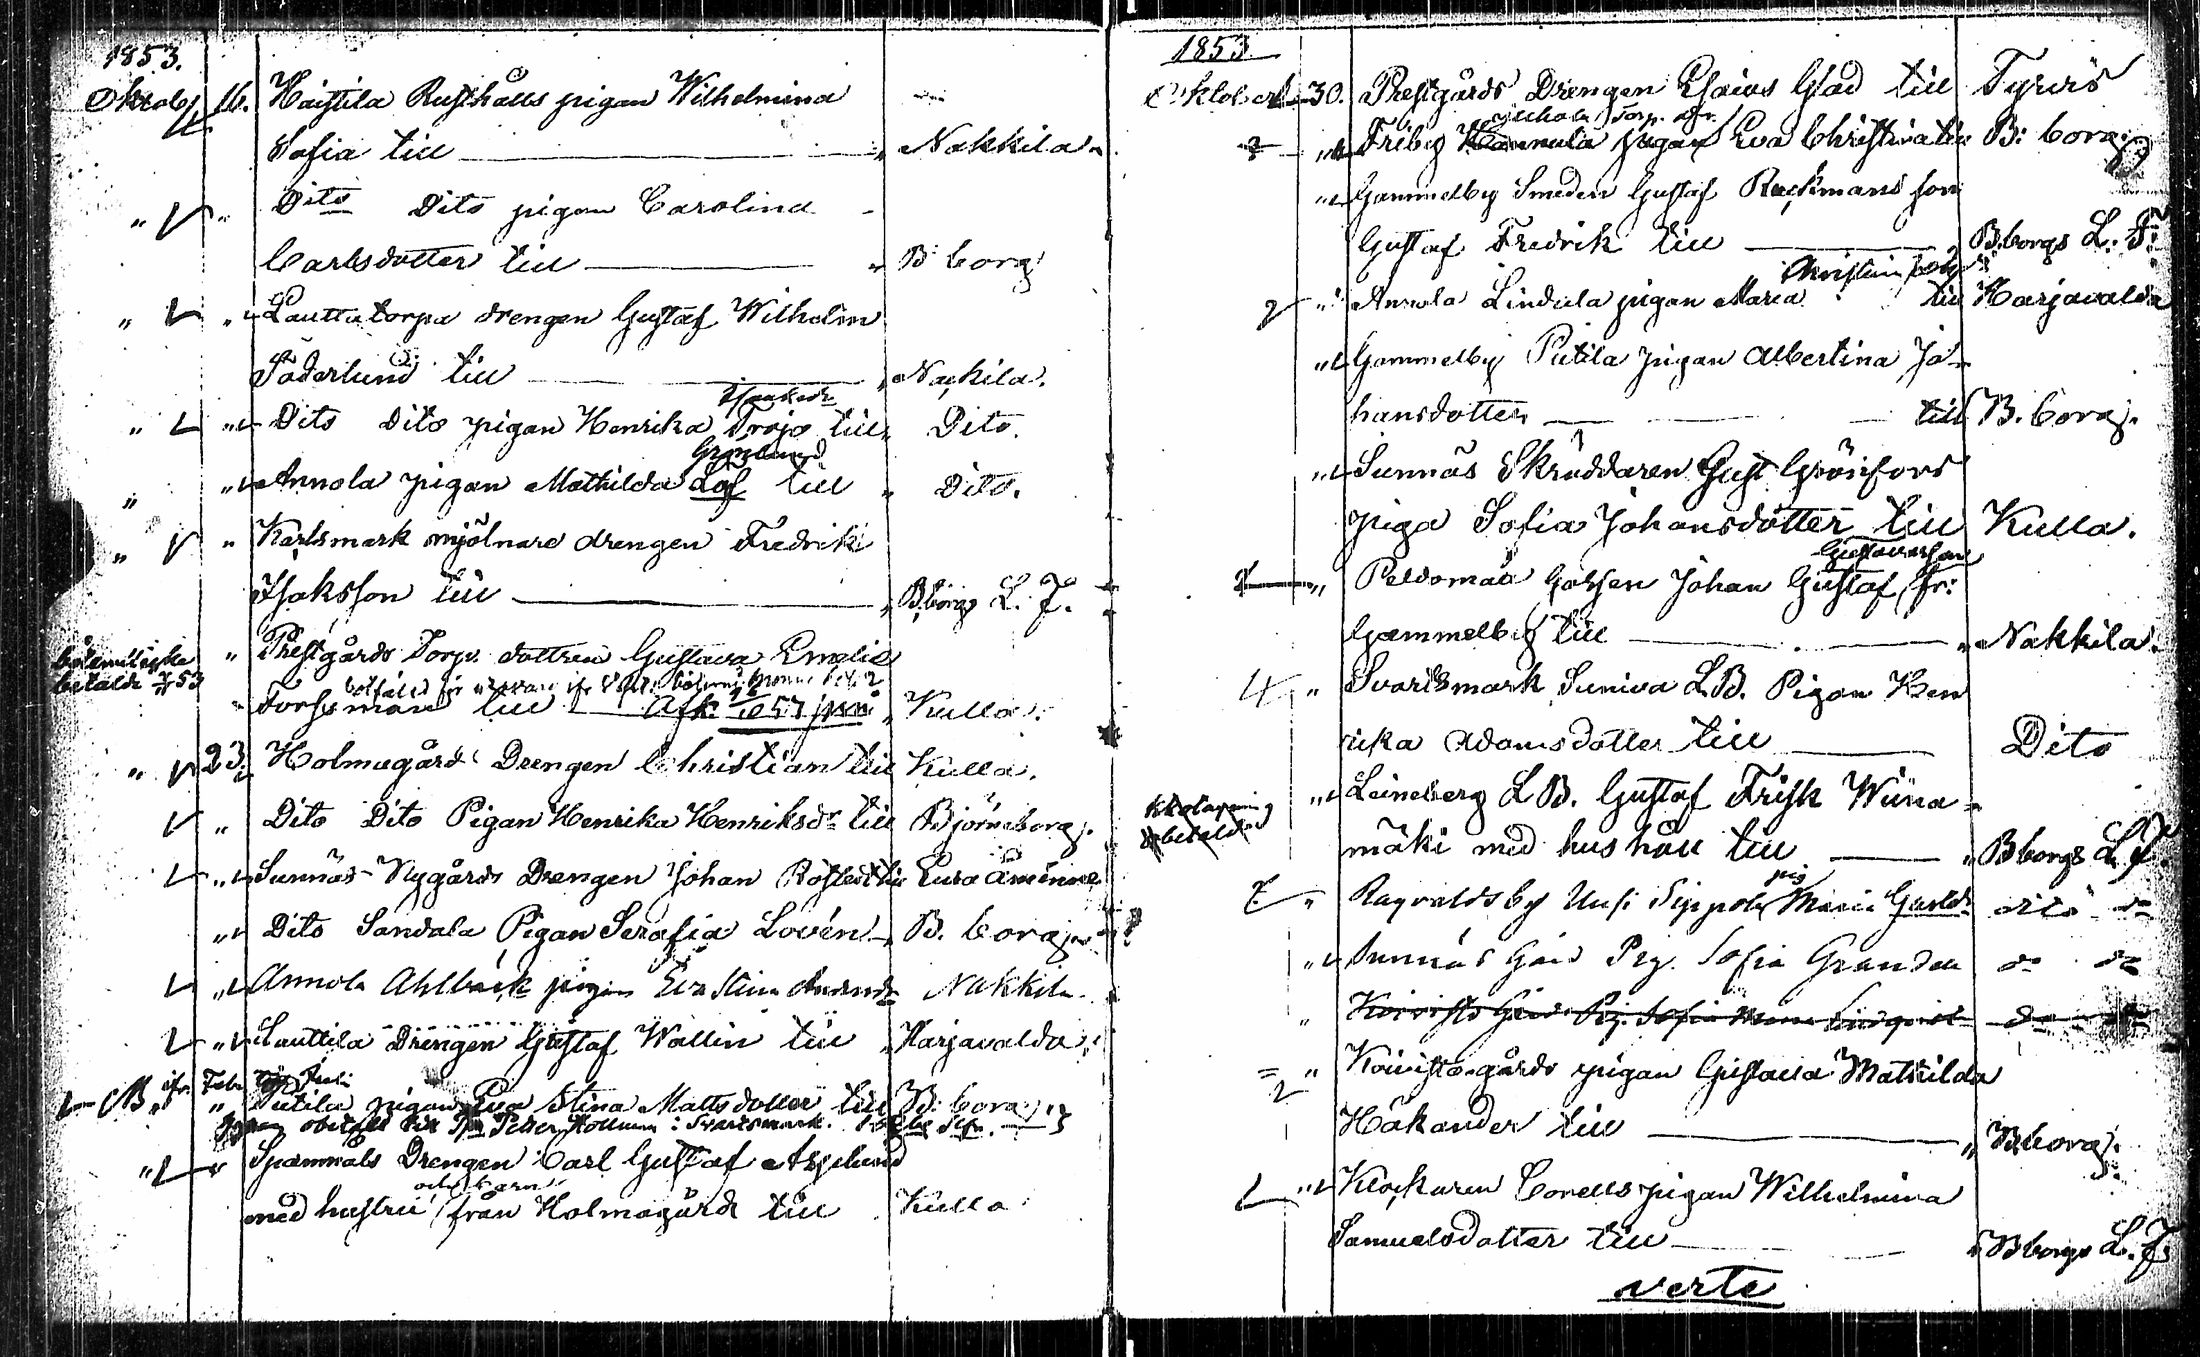 1853.
Oktob. 16. Haistila Rusthålls pigan Wilhelmina
Sofia till Nakkila
Dito Dito pigan Carolina
Carlsdotter till B:borg
Lauttatorpa drengen Gustaf Wilhelm
Söderlund till Nackila.
Isaksdr
Dito Dito pigan Henrika Trojo till Dito.
Grönlund
Annola pigan Mathilda Löf till Dito.
Karlsmark mjölnare drengen Fredrik
Isaksson till B.borgs L. F.
Prestgårds Torp. dottren Gustava Emelie
betalde 53
Forssman till Kulla.
23. Holmagårds Drengen Christian till Kulla.
Dito Dito Pigan Henrika Henriksdr till Björneborg.
Sunnäs Nygårds Drengen Johan till Eura Åminne
Dito Sandala Pigan Serafia Lovén B. borg
Annola Ahlbäck pigan Eva Stina Nakkila
Lauttila Drengen Gustaf Wallin till Harjavalda
Juli
pigan Eva Stina Mattsdotter till B:borg
Svartsmark.
Drengen Carl Gustaf Asplund
och barn
med hustru från Holmagård till Kulla
1853
Oktober 30. Prestgårds Drengen Esaias Glad till Tyrvis
Torp.
Friby pigan Eva Christina till B:borg
Gammelby Smeden Gustaf Rackmans son
Gustaf Fredrik till B:borgs L. F.
Annola Lindala pigan Maria till Harjavalda
Gammelby Pietila pigan Albertina Jo-
hansdotter till B. borg.
Sunnäs Skräddaren Gust Grönfors
piga Sofia Johansdotter till Kulla.
Gustavsson
Peldomää Gossen Johan Gustaf fr:
Gammelby till Nakkila.
Svartsmark Suniva LB. Pigan Hen
rika Adamsdotter till Dito
Leineberg LB. Gustaf Frisk Wiina-
mäki med hushåll till B borgs L F.
pig
Ragvaldsby Uusi Seppola Maria dito do
Sunnäs Gård Pig. Sofia do do
Koivisto Gård Pig. Sofia do
Koivisto gårds pigan Gustava Mathilda
Håkander till B:borg.
Klockaren Corells pigan Wilhelmina
Samuelsdotter till B borgs L. F.
verte